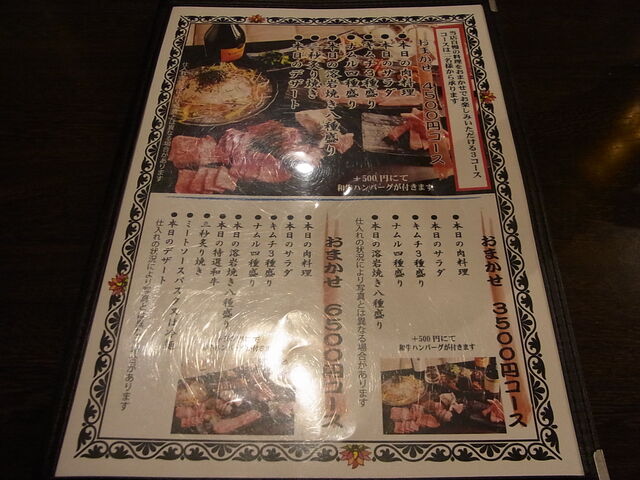 当店自慢の料理をおまかせでお楽しみいただける3コース
コースは二名様から承ります
おまかせ 4500円コース
●本日の肉料理
●本日のサラダ
●キムチ3種盛り
●ナムル四種盛り
●本日の溶岩焼き八種盛り
●三秒炙り焼き
●本日のデザート
+500円にて
和牛ハンバーグが付きます
おまかせ 3500円コース
●本日の肉料理
●本日のサラダ
●キムチ3種盛り
●ナムル四種盛り
●本日の溶岩焼き八種盛り
仕入れの状況により写真とは異なる場合があります
+500円にて
和牛ハンバーグが付きます
おまかせ 6500円コース
●本日の肉料理
●本日のサラダ
●キムチ3種盛り
●ナムル四種盛り
●本日の溶岩焼き八種盛り
●本日の特選和牛
●三秒炙り焼き
●ミートソースパスタ
●本日のデザート
仕入れの状況により写真
があります
和牛ハンバーグが付きます